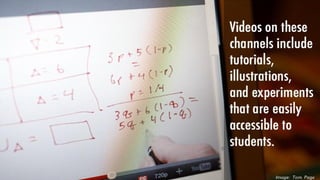 V=2
Δ=6
Δ=4
UΔ=
3p+5(1-p)
=
6p+4(1-p)
p=1/4
3q+6(1-q)=
5q+4(1-q)
720p
Videos on these
channels include
tutorials,
illustrations,
and experiments
that are easily
accessible to
students.
Image: Tom Page